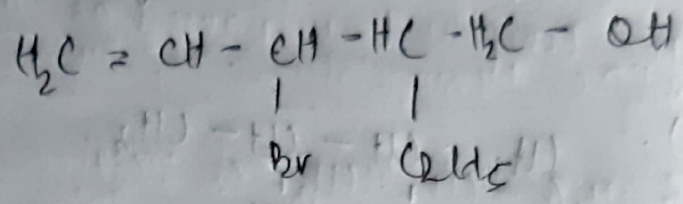 H₂C = CH - CH - HC - H₂C - OH
Br C2H5